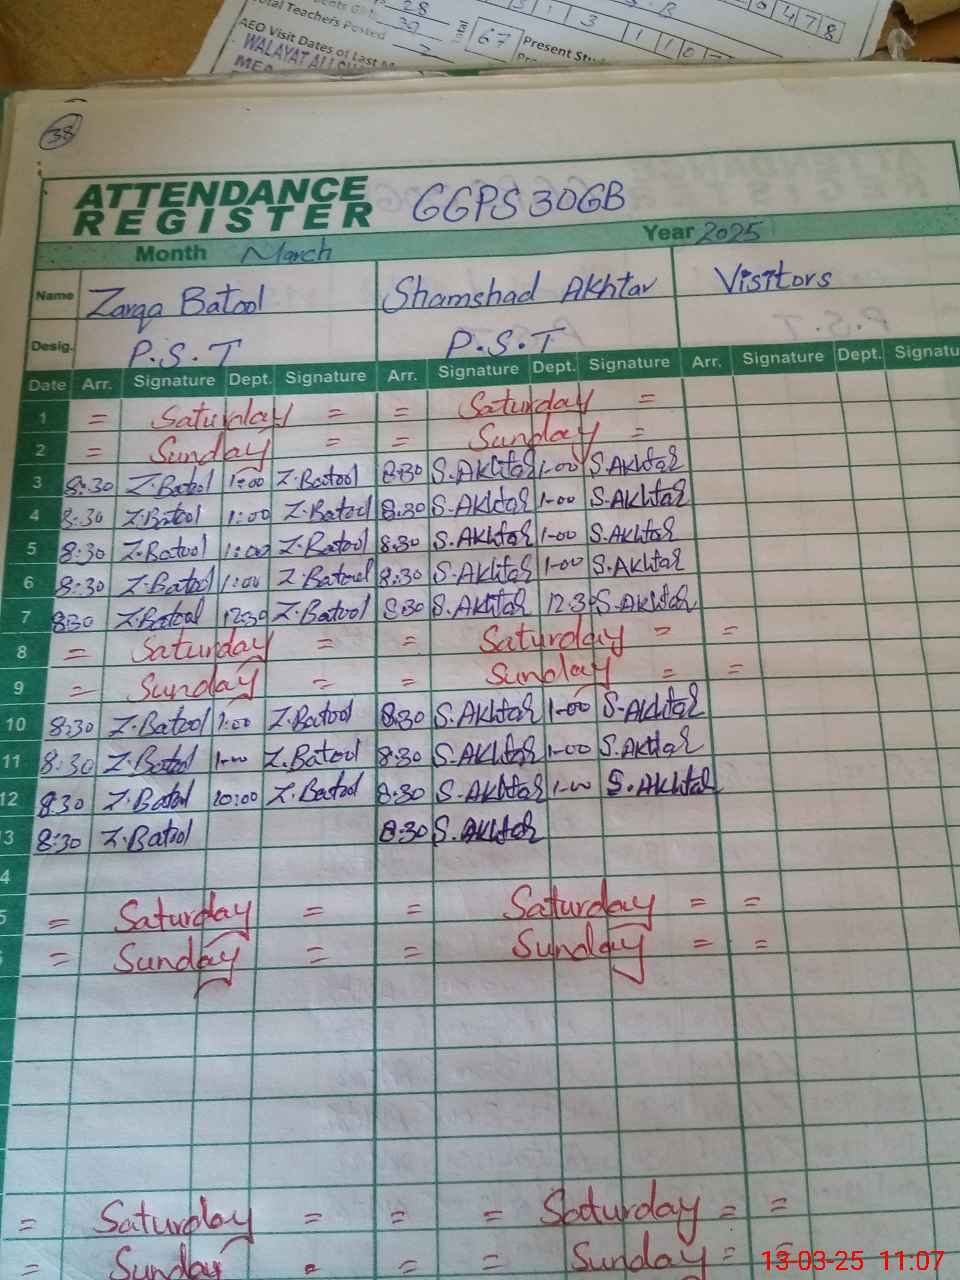 28
Total Teachers Posted 39
AEO Visit Dates of Last
67 Present
WALAYAT ALI
3 1 3
1 1 0
0 4 7 8
38
ATTENDANCE REGISTER GGPS 30GB
Month March Year 2025
Name Zarqa Batool Shamshad Akhtar Visitors
Desig. P.S.T P.S.T
Date Arr. Signature Dept. Signature Arr. Signature Dept. Signature Arr. Signature Dept. Signatu
1 = Saturday = = Saturday =
2 = Sunday = = Sunday =
3 8:30 Z.Batool 1:00 Z.Batool 8:30 S.Akhtar 1-00 S.Akhtar
4 8:30 Z.Batool 1:00 Z.Batool 8:30 S.Akhtar 1-00 S.Akhtar
5 8:30 Z.Batool 1:00 Z.Batool 8:30 S.Akhtar 1-00 S.Akhtar
6 8:30 Z.Batool 1:00 Z.Batool 8:30 S.Akhtar 1-00 S.Akhtar
7 8:30 Z.Batool 12:30 Z.Batool 8:30 S.Akhtar 12.30 S.Akhtar
8 = Saturday = = Saturday = =
9 = Sunday = = Sunday = =
10 8:30 Z.Batool 1:00 Z.Batool 8:30 S.Akhtar 1-00 S.Akhtar
11 8:30 Z.Batool 1-00 Z.Batool 8:30 S.Akhtar 1-00 S.Akhtar
12 8:30 Z.Batool 10:00 Z.Batool 8:30 S.Akhtar 1-00 S.Akhtar
3 8:30 Z.Batool 8:30 S.Akhtar
4
5 = Saturday = = Saturday = =
= Sunday = = Sunday = =
= Saturday = = = Saturday = =
= Sunday = = = Sunday = =
13-03-25 11:07